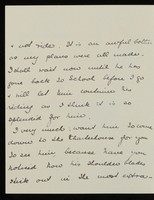 & not rides. It is an awful bother
as my plans were all made.
I shall wait now until he has
gone back to School before I go
& will let him continue his
riding as I think it is so
splendid for him.
I very much want him to come
down to the Charterhouse for you
to see him because have you
noticed how his shoulder blades
stick out in the most extra-